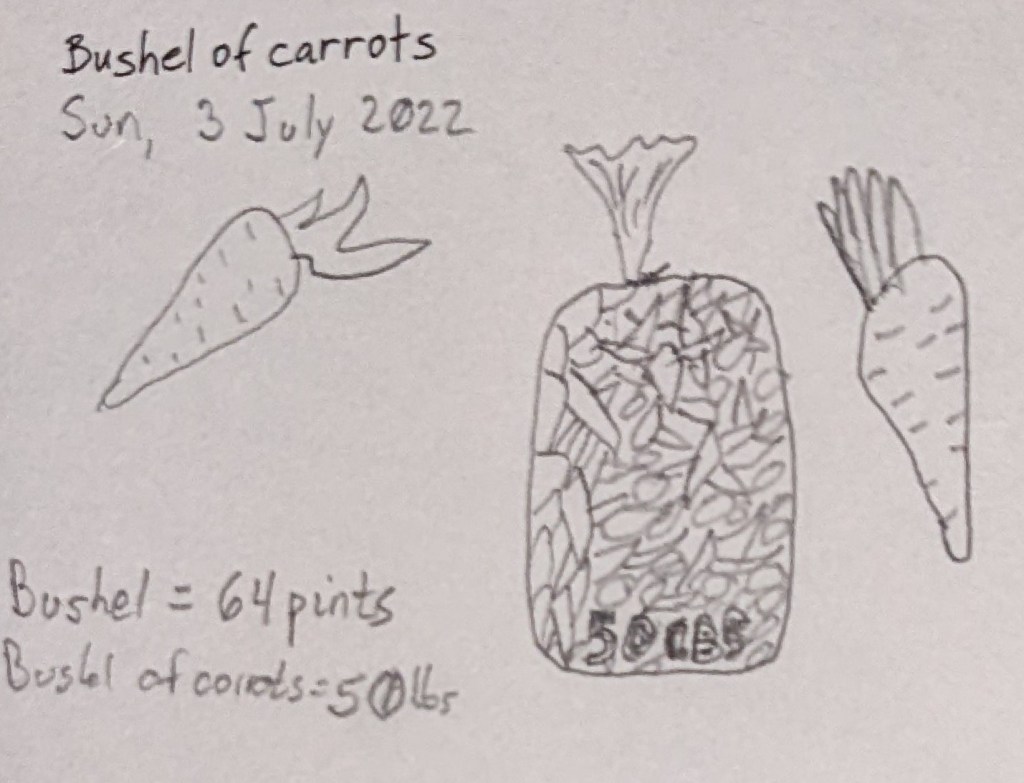 Bushel of carrots
Sun, 3 July 2022
Bushel = 64 pints
Bushel of carrots = 50 lbs
50 LBS